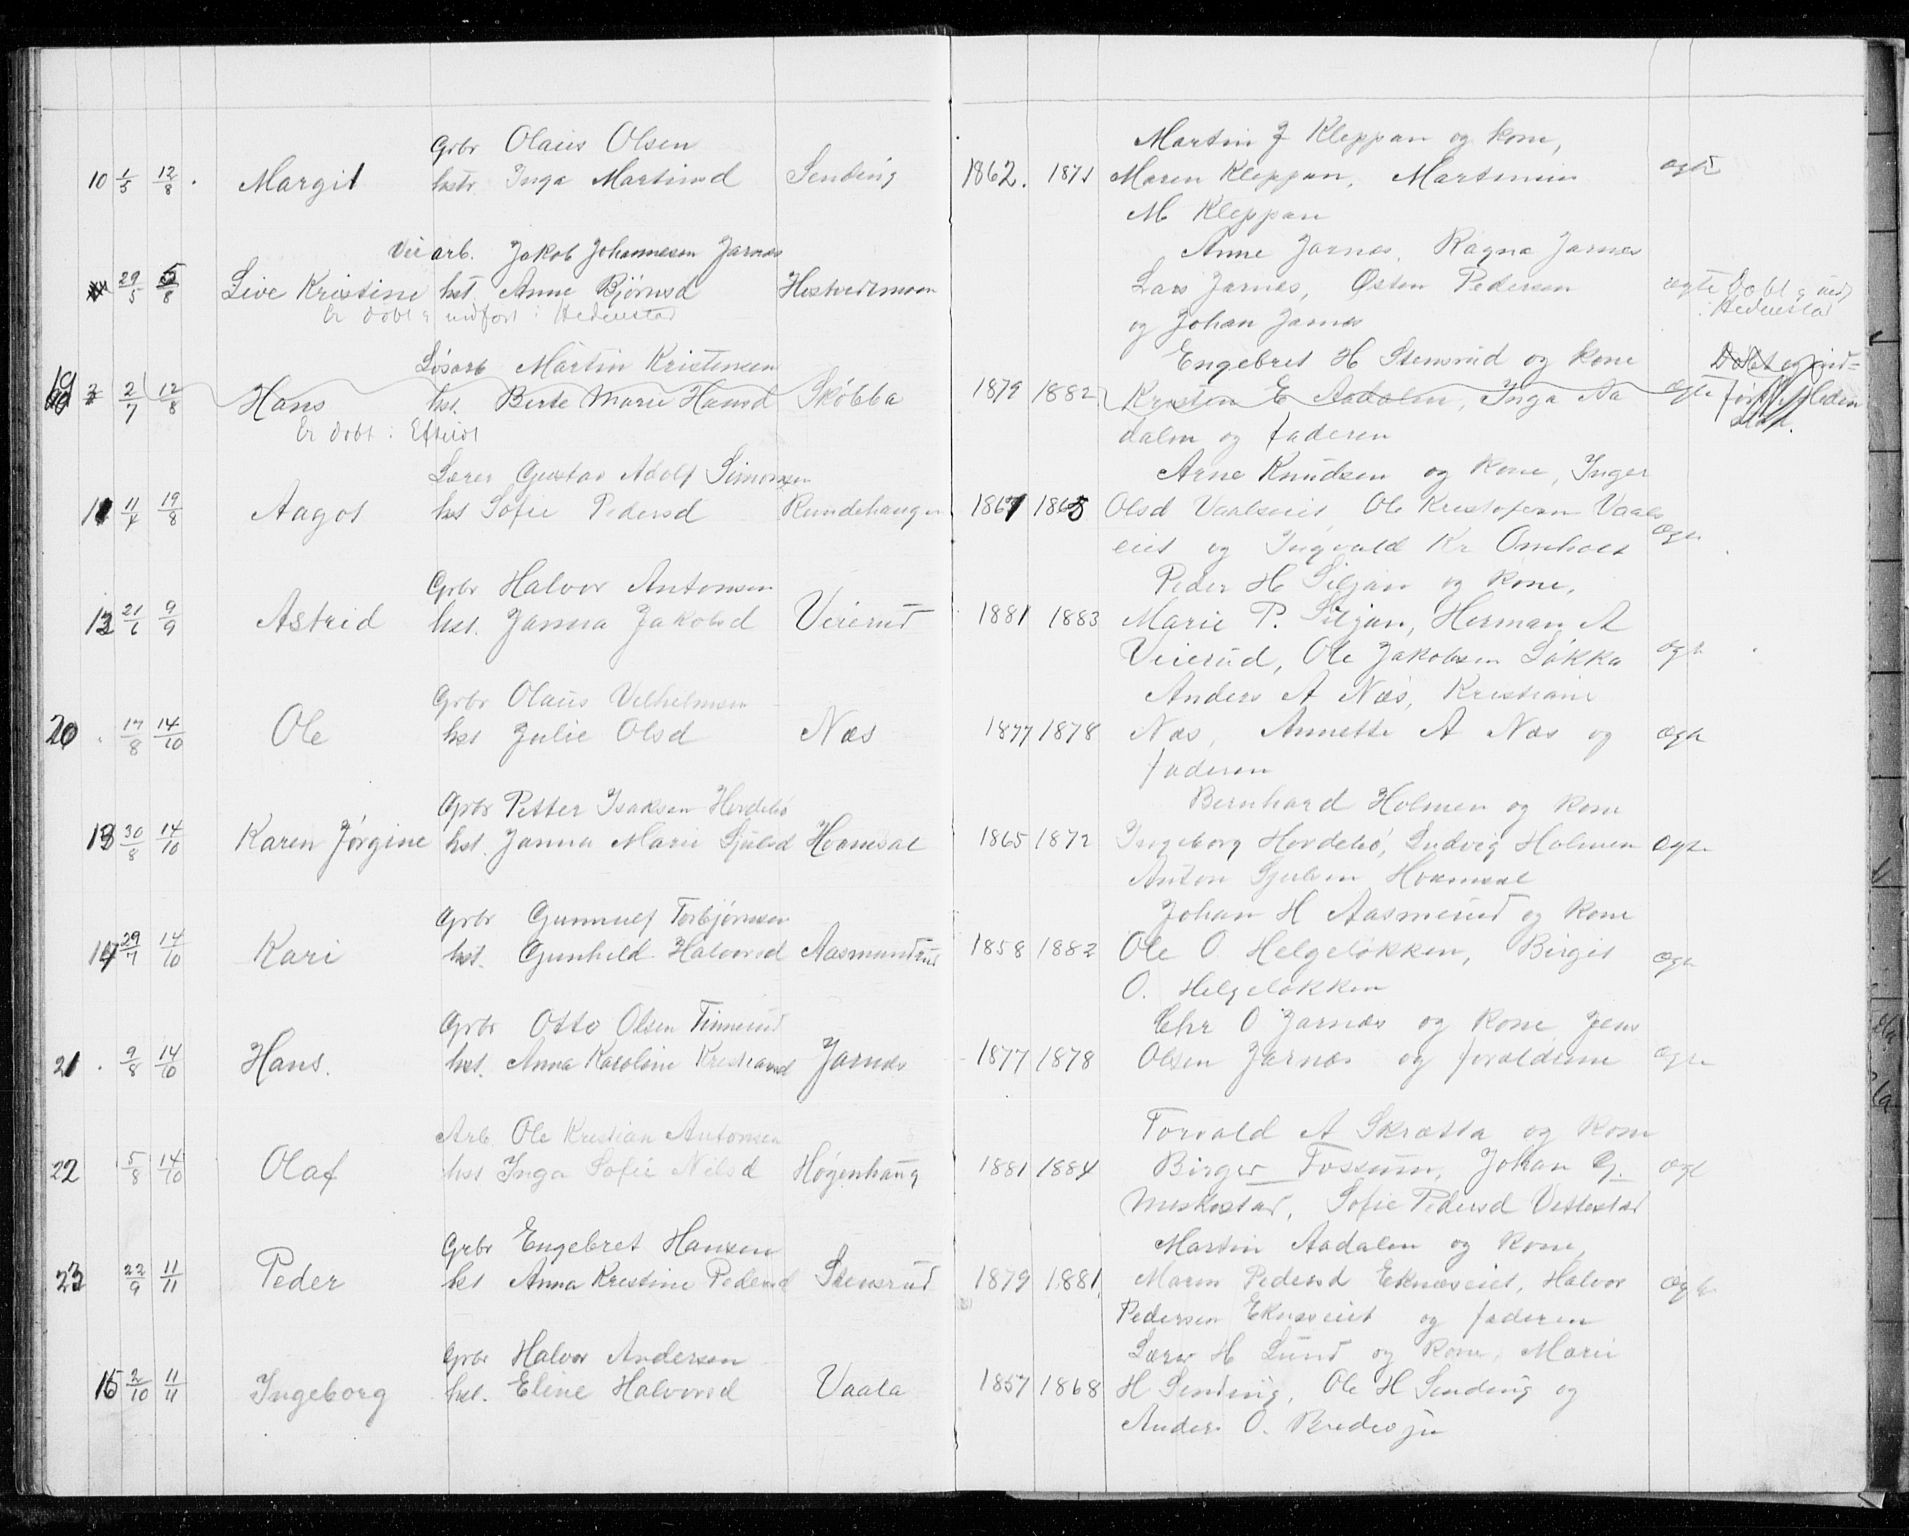 Grbr Olaus Olsen Martin J Kleppan og kone,
10 1/5 12/8 Margit hstr. Inga Martinsd Sending 1862. 1871 Maren Kleppan, Martinius ægte
M Kleppan
Veiarb. Jakob Johannesen Jarnæs Anne Jarnæs, Ragna Jarnæs
29/5 5/8 Live Kristine hst. Anne Bjørnsd Hostvedtmoen Lars Jarnæs, Østen Pedersen ægte Døbt & indf
Er døbt & indført i Hedenstad og Johan Jarnæs i Hedenstad
Løsarb Martin Kristensen Engebret H Stensrud og kone Døbt og ind=
19 2/7 12/8 Hans hst. Berte Marie Hansd Skøbba 1879 1882 Kristen E Aadalen, Inga Aa ægte ført i Heden
Er døbt i Efteløt dalen og faderen stad.
Lærer Gustav Adolf Simonsen Arne Knudsen og kone, Inger
11 11/4 19/8 Aagot hst Sofie Pedersd Rundehaugen 1861 1865 Olsd Vaalseiet, Ole Kristofersen Vaals
eiet og Ingvald Kr Omholt ægte
Grbr Halvor Antonsen Peder H Siljan og kone,
12 21/6 9/9 Astrid hst. Janna Jakobsd Veierud 1881 1883 Marie P. Siljan, Herman A
Veierud, Ole Jakobsen Løkka ægte
Grbr Olaus Vilhelmsen Anders A Næs, Kristiane
20 17/8 14/10 Ole hst Julie Olsd Næs 1877 1878 Næs, Annette A Næs og ægte
faderen
Grbr Petter Isaksen Hordebø Bernhard Holmen og kone
13 30/8 14/10 Karen Jørgine hst. Janna Marie Sjulsd Hvamsal 1865 1872 Ingeborg Hordebø, Ludvig Holmen ægte
Anton Sjulsen Hvamsal
Grbr Gunnulf Torbjørnsen Johan H Aasmerud og kone
14 29/7 14/10 Kari hst. Gunhild Halvorsd Aasmundrud 1858 1882 Ole O Helgeløkken, Birgit ægte
O. Helgeløkken
Grbr Otto Olsen Tinnerud Chr O Jarnæs og kone Jens
21 9/8 14/10 Hans. hst. Anna Karoline Kristiansd Jarnæs 1877 1878 Olsen Jarnæs og forældrene ægte
Arb. Ole Kristian Antonsen Torvald A Skrætta og kone
22 5/8 14/10 Olaf hst Inga Sofie Nilsd Høgenhaug 1881 1884 Birger Fossum, Johan G. ægte
Meskestad, Sofie Pedersd Vettestad
Grbr Engebret Hansen Martin Aadalen og kone,
23 22/9 11/11 Peder hst Anna Kristine Pedersd Stensrud 1879 1881 Maren Pedersd Eknæseiet, Halvor ægte
Pedersen Eknæseiet og faderen
Grbr Halvor Andersen Lærer H Lund og kone, Marie
15 2/10 11/11 Ingeborg hst. Eline Halvorsd Vaala 1857 1868 H Sending, Ole H Sending og
Anders O. Bredesju